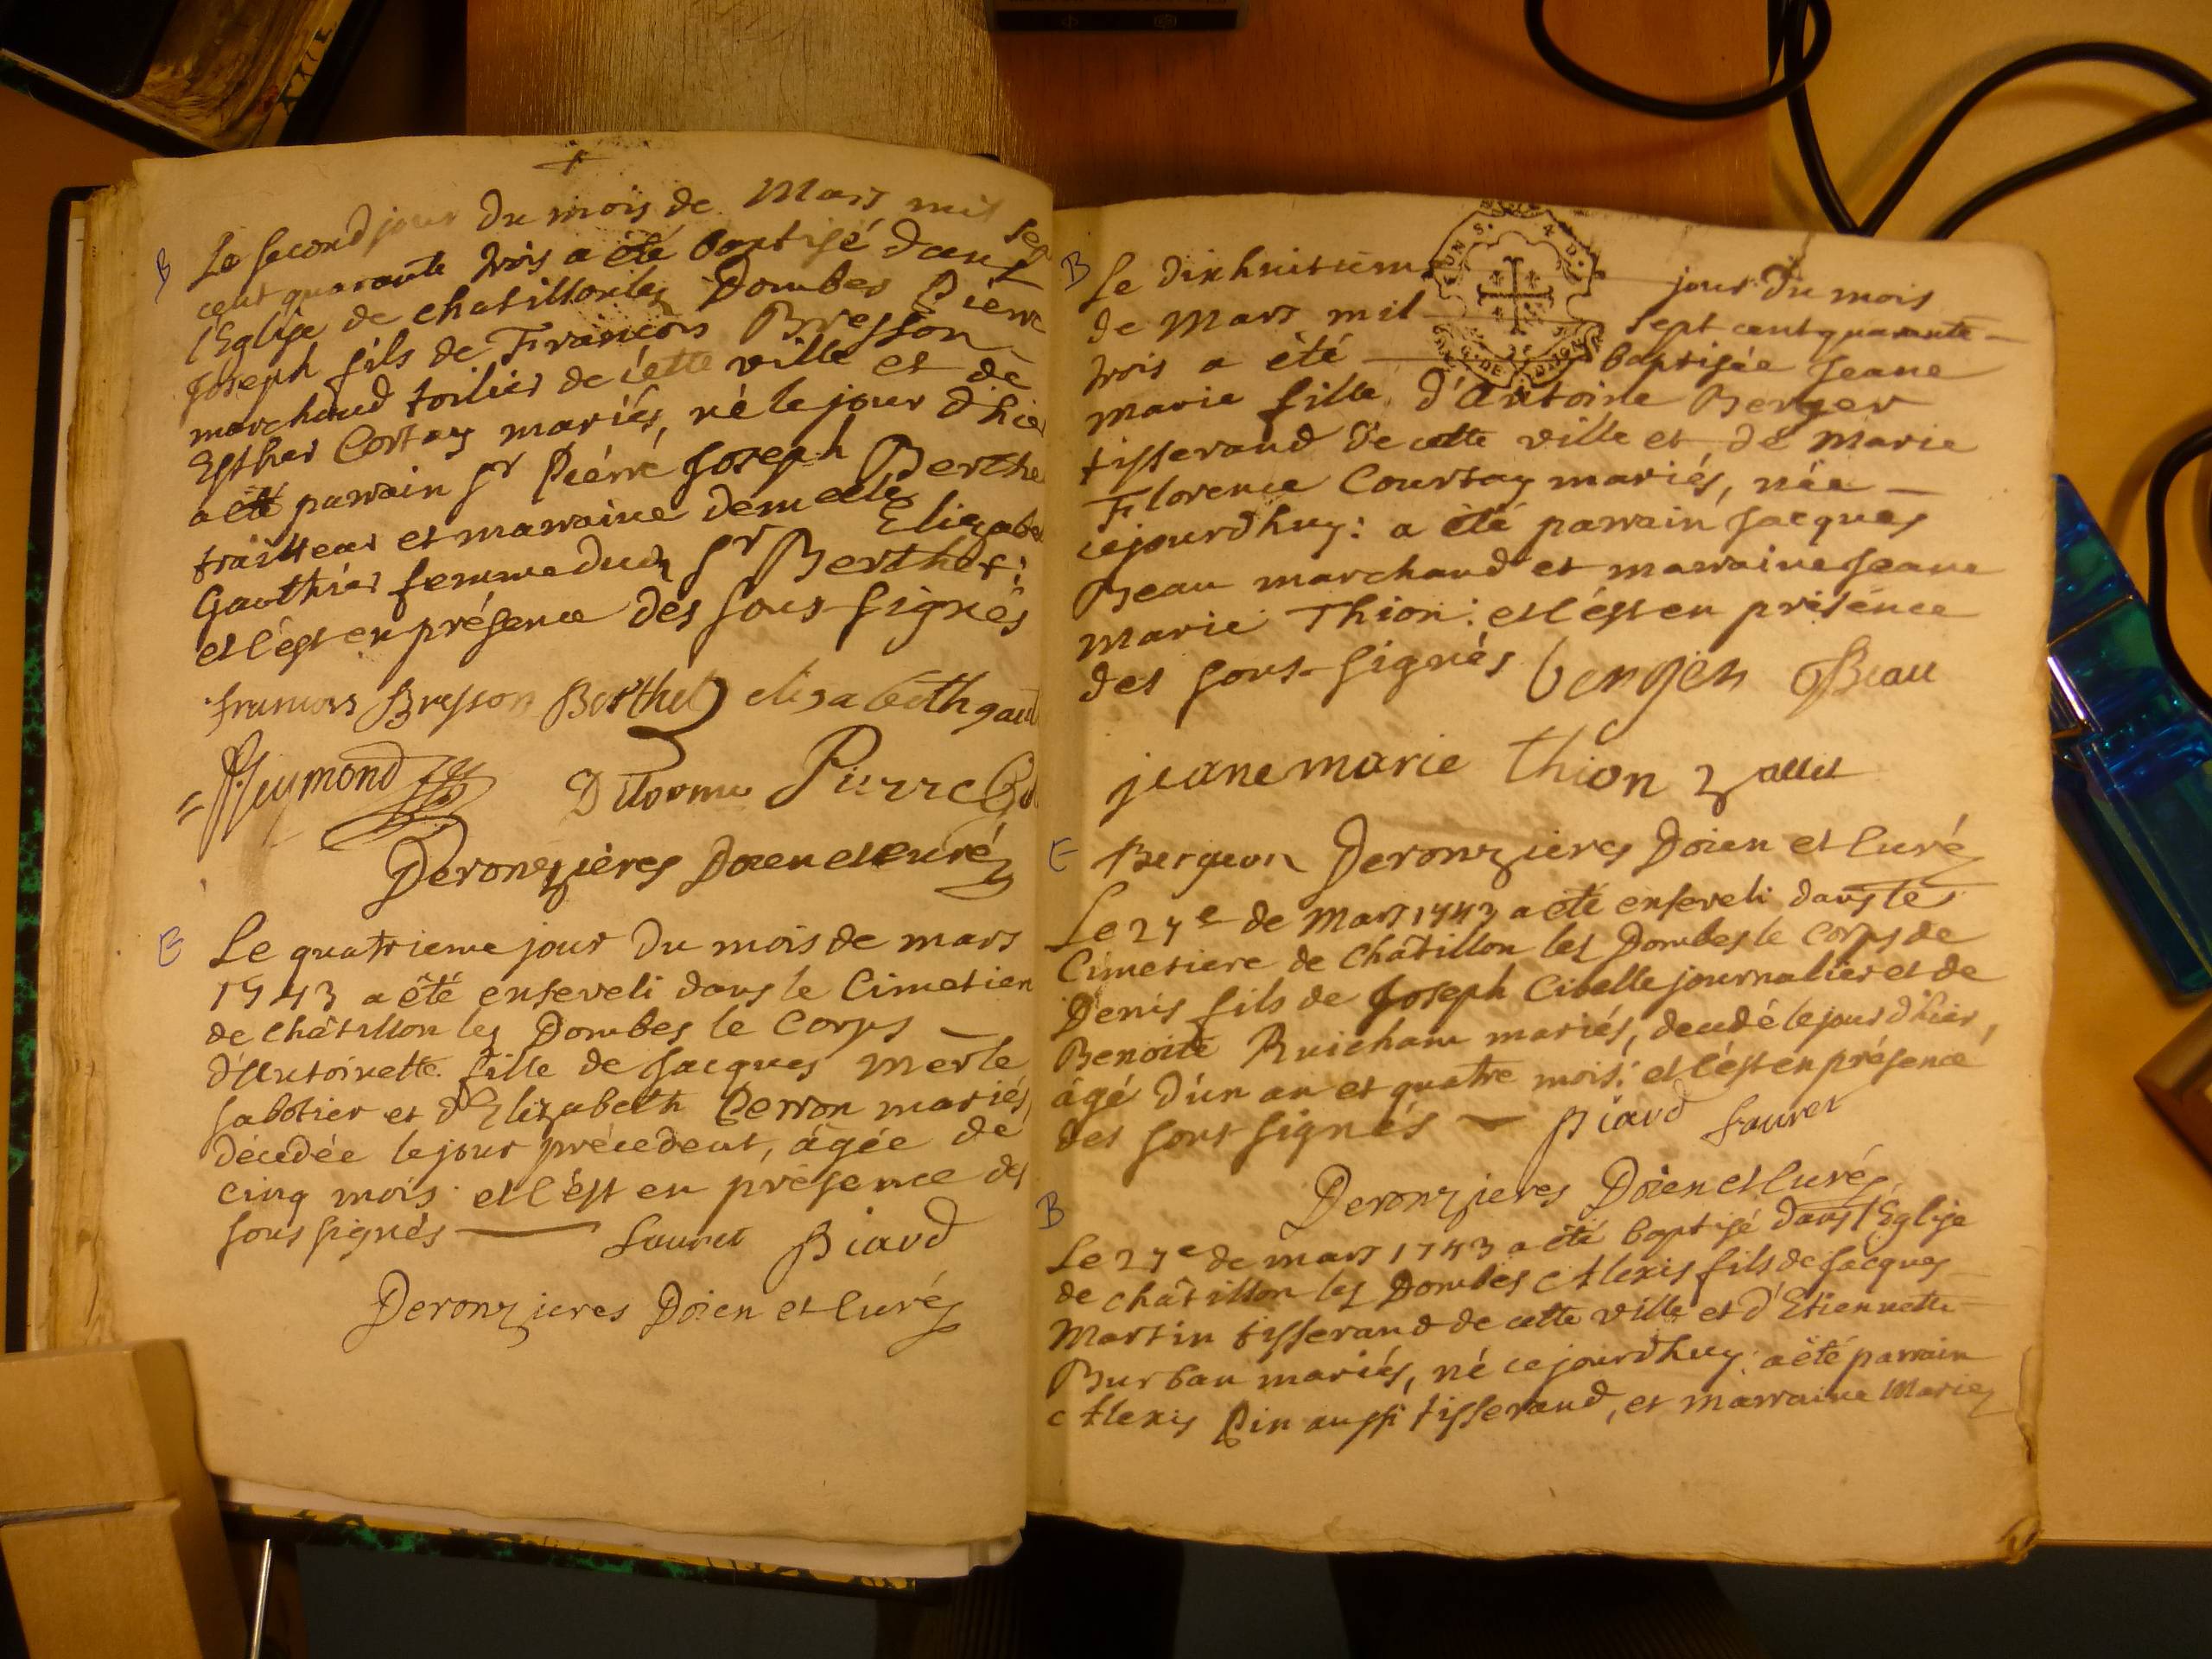 +
B
Le second jour du mois de Mars mil sep
cent quarante trois a été baptisé dans
l'Eglise de chatillon les Dombes Pierre
Joseph fils de François Bresson
marchand toilier de cette ville et de
Esther Cortay mariés, né le jour d'hier
a été parrain sr Pierre Joseph Berthe
traitteur et marraine demoiselle Elizabe
Gauthier femme dudt sr Berthet:
et l'est en présence des sous-signés
francois Bresson Berthet elisabeth gaut
Reymond Delorme Pierre
Deronzières Doien et curé
E
Le quatrieme jour du mois de mars
1743 a été enseveli dans le Cimetiere
de Châtillon les Dombes le Corps —
d'Antoinette fille de Jacques Merle
sabotier et d'Elizabeth Perron mariés,
décedée le jour précedent, âgée de
cinq mois: et l'est en présence des
sous signés — Lauret Biard
Deronzieres Doien et Curé
B
Le dixhuitieme — jour du mois
de Mars mil — sept cent quarante —
trois a été — baptisée Jeane
marie fille d'Antoine Berger
tisserand de cette ville et de Marie
Florence Courtay mariés, née —
cejourdhuy: a été parrain Jacques
Beau marchand et marraine Jeane
marie Thion: et l'est en présence
des sous-signés berger Beau
jeane marie thion
E
Bergeon Deronzieres Doien et Curé
Le 27e de Mars 1743 a été enseveli dans le
Cimetiere de Châtillon les Dombes le corps de
Denis fils de Joseph Cibelle journalier et de
Benoite mariés, decedé le jour d'hier,
âgé d'un an et quatre mois: et l'est en présence
des sous signés — Biard Lauret
Deronzieres Doien et Curé
B
Le 27e de mars 1743 a été baptisé dans l'Eglise
de châtillon les Dombes Alexis fils de Jacques
Martin tisserand de cette ville et d'Etiennette
Burban mariés, né cejourdhuy: a été parrain
Alexis Pin aussi tisserand, et marraine Marie